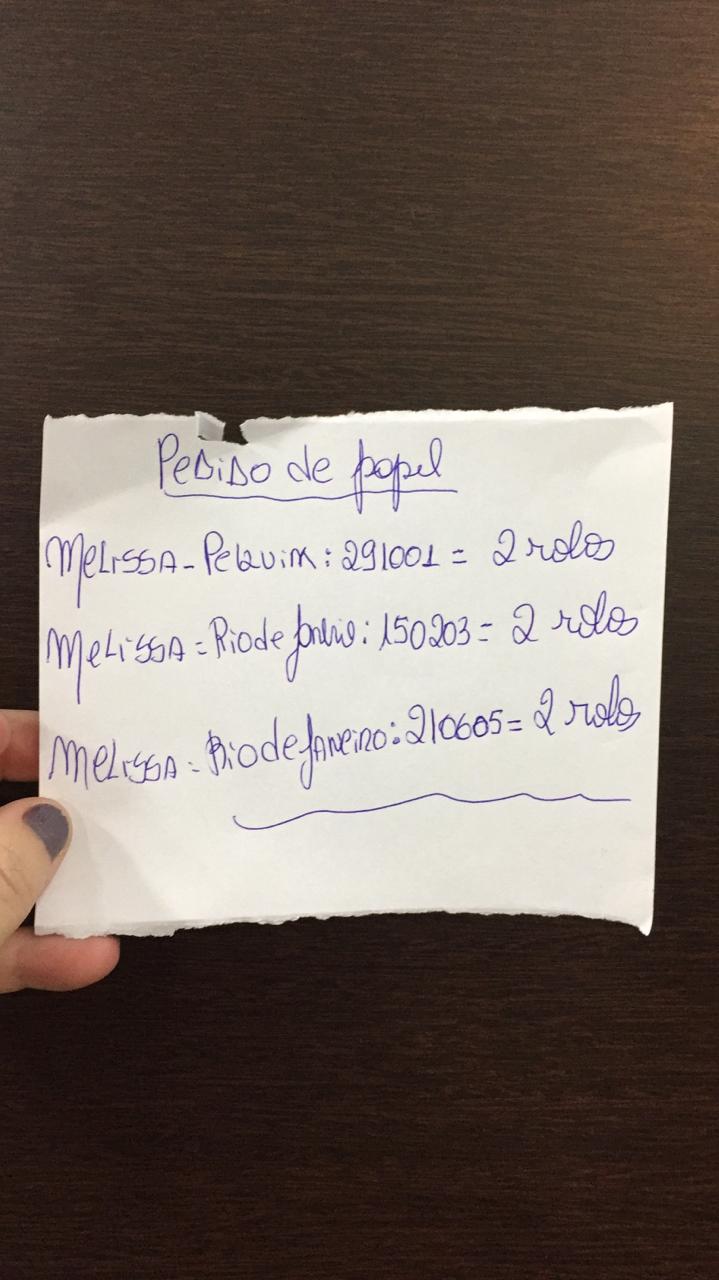 Pedido de papel
Melissa - Pequim: 291001 = 2 rolos
Melissa = Rio de Janeiro: 150203 = 2 rolos
Melissa = Rio de Janeiro: 210605 = 2 rolos